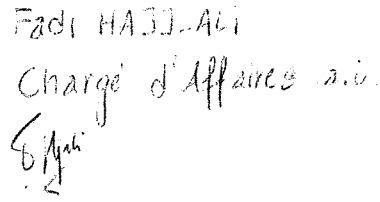 Fadi HAJJ-ALi
Chargé d'Affaires a.i.